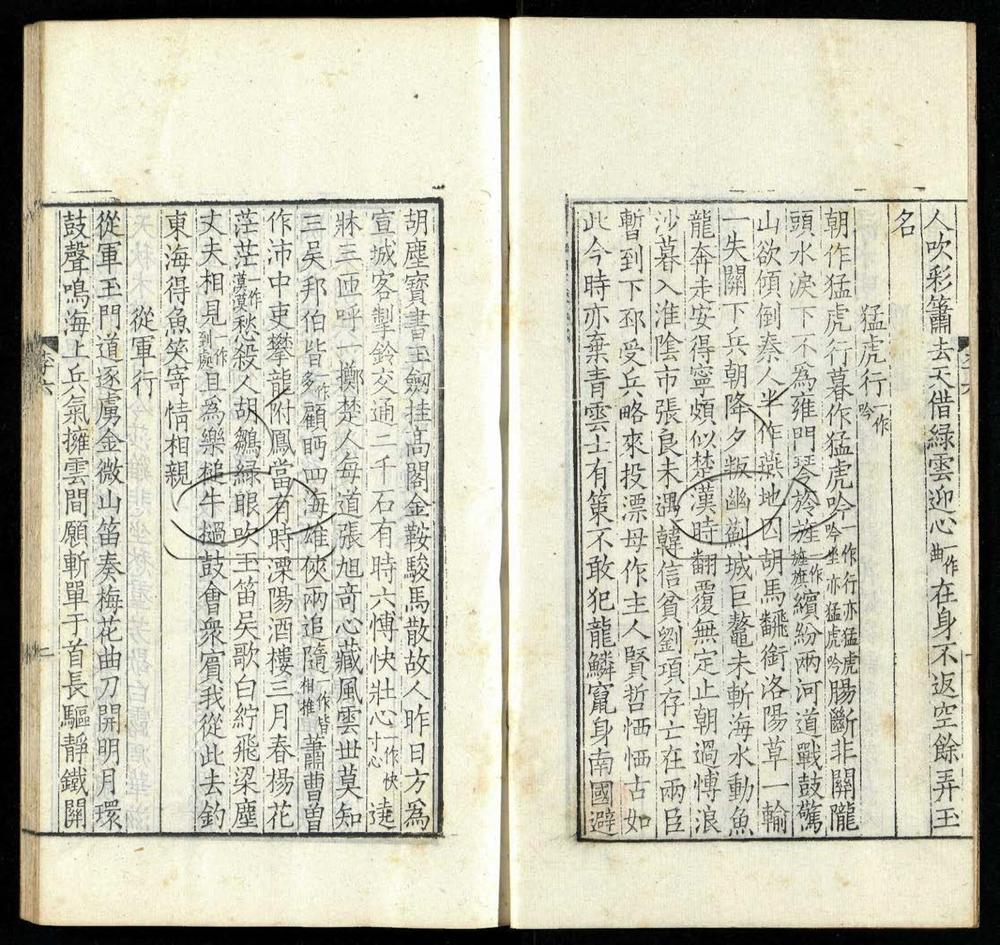 人吹彩簫去天借綠雲迎心一作曲在身不返空餘弄玉
名
猛虎行一作吟
朝作猛虎行暮作猛虎吟一作行亦猛虎吟坐亦猛虎吟腸斷非關隴
頭水淚下不爲雍門琴於旌一作旌旗繽紛兩河道戰鼓驚
山欲傾倒秦人半作燕地囚胡馬飜銜洛陽草一輸
一失關下兵朝降夕叛幽薊城巨鼇未斬海水動魚
龍奔走安得寧頗似楚漢時翻覆無定止朝過愽浪
沙暮入淮陰市張良未遇韓信貧劉項存亡在兩臣
暫到下邳受兵略來投漂母作主人賢哲恓恓古如
此今時亦棄青雲士有策不敢犯龍鱗竄身南國避
胡塵寶書玉劒挂髙閣金鞍駿馬散故人昨日方爲
宣城客掣鈴交通二千石有時六愽快壯心一作快寸心遶
牀三匝呼一擲楚人每道張旭竒心藏風雲世莫知
三吳邦伯皆多一作顧眄四海雄俠兩追隨一作皆相推蕭曹曽
作沛中吏攀龍附鳳當有時溧陽酒樓三月春楊花
茫茫一作漠漠愁殺人胡鶵綠眼吹玉笛吳歌白紵飛梁塵
丈夫相見一作到處且爲樂槌牛撾鼓會衆賔我從此去釣
東海得魚笑寄情相親
從軍行
從軍玉門道逐虜金微山笛奏梅花曲刀開明月環
鼓聲鳴海上兵氣擁雲間願斬單于首長驅靜鐵關
李六
二